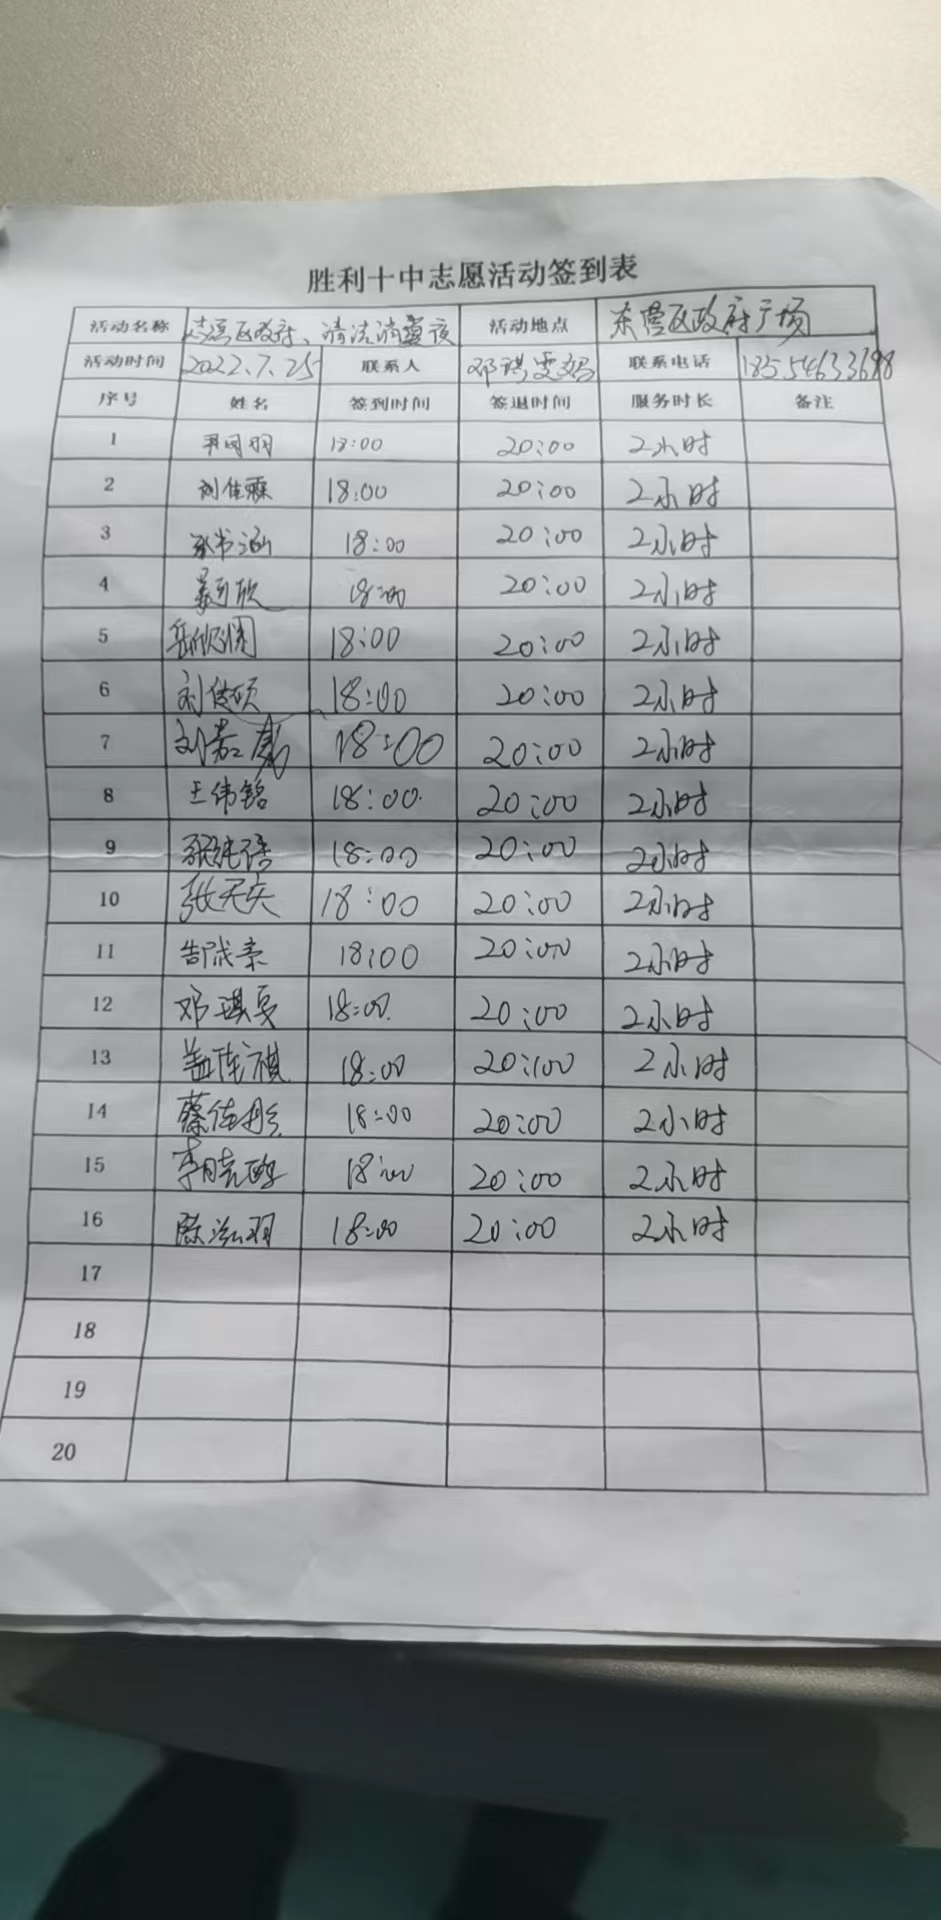 胜利十中志愿活动签到表
活动名称 志愿区政府、清洁消夏夜 活动地点 东营区政府广场
活动时间 2022.7.25 联系人 邓琪雯妈 联系电话 18554633698
序号 姓名 签到时间 签退时间 服务时长 备注
1 18:00 20:00 2小时
2 刘佳霖 18:00 20:00 2小时
3 张书涵 18:00 20:00 2小时
4 18:00 20:00 2小时
5 岳欣润 18:00 20:00 2小时
6 刘俊硕 18:00 20:00 2小时
7 刘嘉 18:00 20:00 2小时
8 王伟铭 18:00 20:00 2小时
9 张纯语 18:00 20:00 2小时
10 张天奕 18:00 20:00 2小时
11 郜成泰 18:00 20:00 2小时
12 邓琪雯 18:00 20:00 2小时
13 盖佳祺 18:00 20:00 2小时
14 蔡佳彤 18:00 20:00 2小时
15 李晓 18:00 20:00 2小时
16 陈泓羽 18:00 20:00 2小时
17
18
19
20